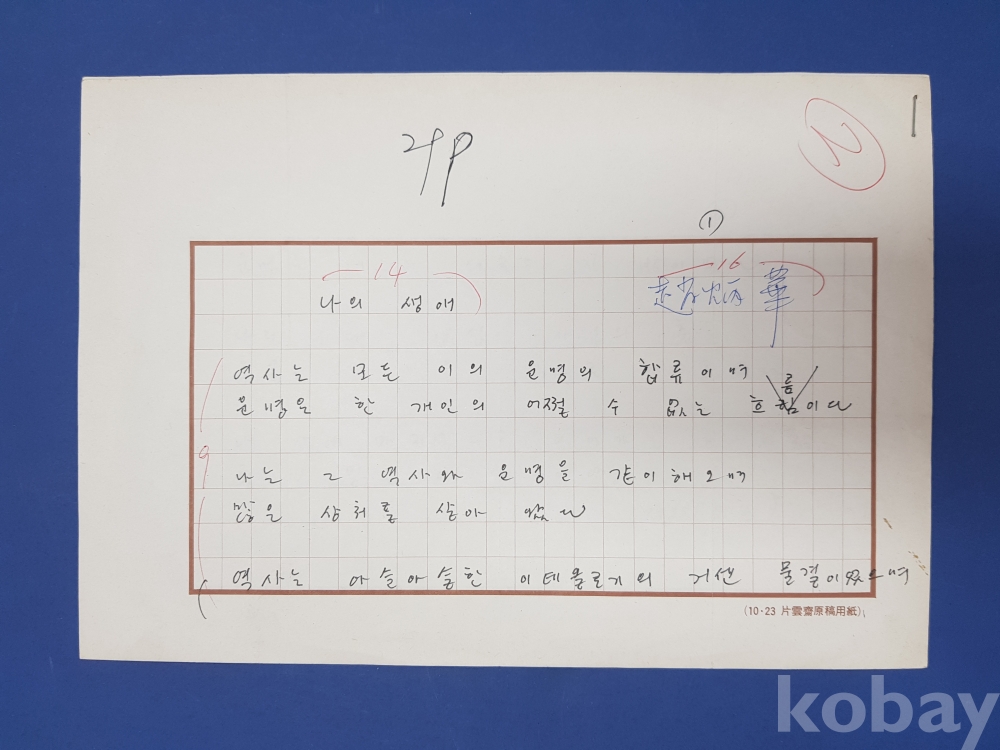 21P
2
①
14
16
나의 생애
趙炳華
역사는 모든 이의 운명의 합류이며
운명은 한 개인의 어쩔 수 없는 흐름이다
9
나는 그 역사와 운명을 같이해오며
많은 상처를 살아 왔다
역사는 아슬아슬한 이데올로기의 거센 물결이였으며
(10·23 片雲齋原稿用紙)
kobay